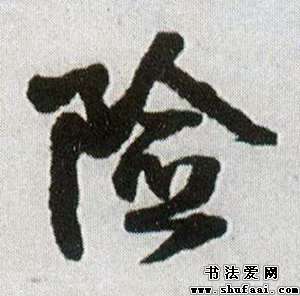 险
书法爱网
www.shufaai.com